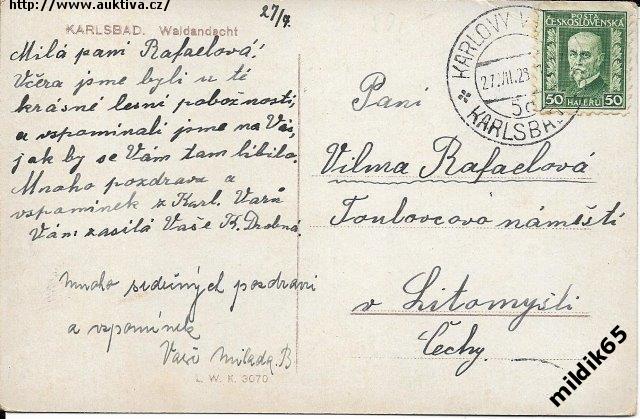 http://www.auktiva.cz/
KARLSBAD. Waldandacht
27/7.
Milá paní Rafaelová!
Včera jsme byli u té
krásné lesní pobožnosti,
a vspomínali jsme na Vás,
jak by se Vám tam líbilo.
Mnoho pozdravů a
vspomínek z Karl. Varů
Vám zasílá Vaše K. Drobná.
Mnoho srdečných pozdravů
a vzpomínek
Vaše Milada. B
L. W. K. 3070
KARLOVY V
27.VII.28
5d
KARLSBA
POSTA
ČESKOSLOVENSKÁ
50 HALÉŘŮ 50
Paní
Vilma Rafaelová
Toulovcovo náměstí
v Litomyšli
Čechy.
mildik65